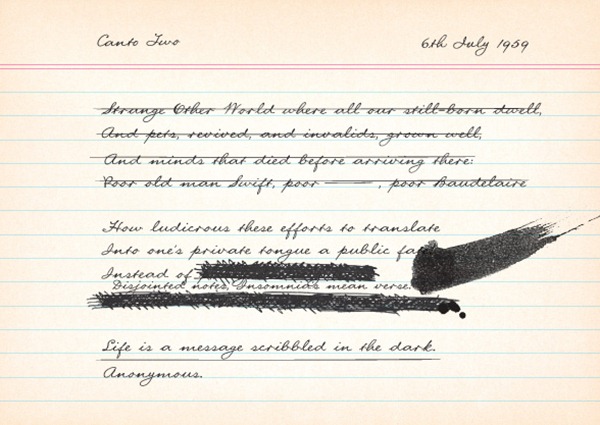 Canto Two 6th July 1959
Strange Other World where all our still-born dwell,
And pets, revived, and invalids, grown well,
And minds that died before arriving there:
Poor old man Swift, poor ———, poor Baudelaire
How ludicrous these efforts to translate
Into one's private tongue a public
Instead of
Disjointed notes, Insomnia's mean verse.
Life is a message scribbled in the dark.
Anonymous.